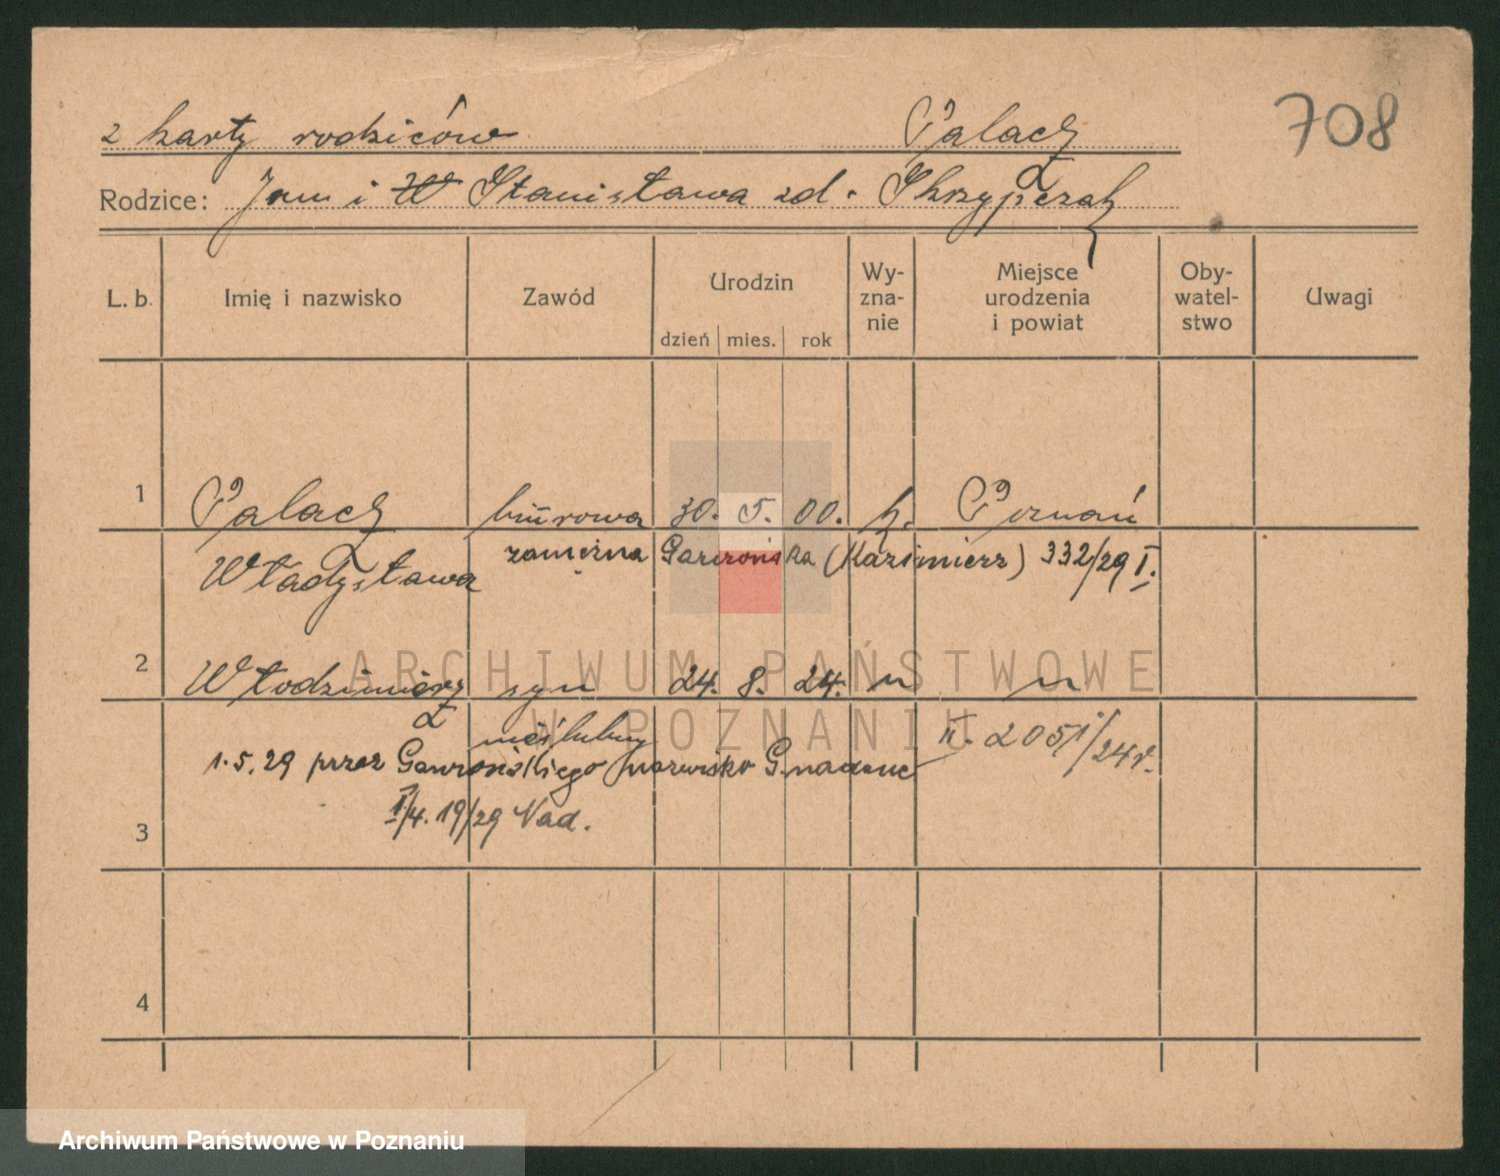 z karty rodziców Palacz
708
Rodzice: Jan i W Stanisława zd. Skrzypczak
L. b. Imię i nazwisko Zawód Urodzin dzień mies. rok Wy-zna-nie Miejsce urodzenia i powiat Oby-watel-stwo Uwagi
1 Palacz biurowa 30. 5. 00. k. Poznań
Władysława zamężna Gawrońska (Kazimierz) 332/29 I.
2 Włodzimierz syn 24. 8. 24. " "
nieślubny II. 2051/24r.
1.5.29 przez Gawrońskiego nazwisko nadane
I/4. 19/29 Nad.
3
4
ARCHIWUM PAŃSTWOWE
W POZNANIU
Archiwum Państwowe w Poznaniu